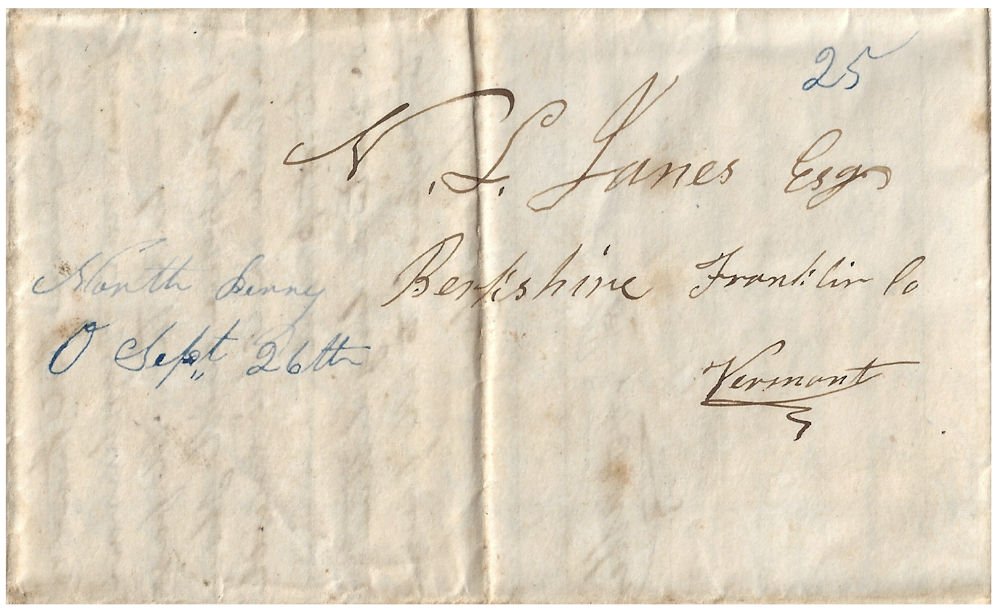 25
N. L. Janes Esqr
Berkshire Franklin Co
Vermont
North Perry
O Sept. 26th